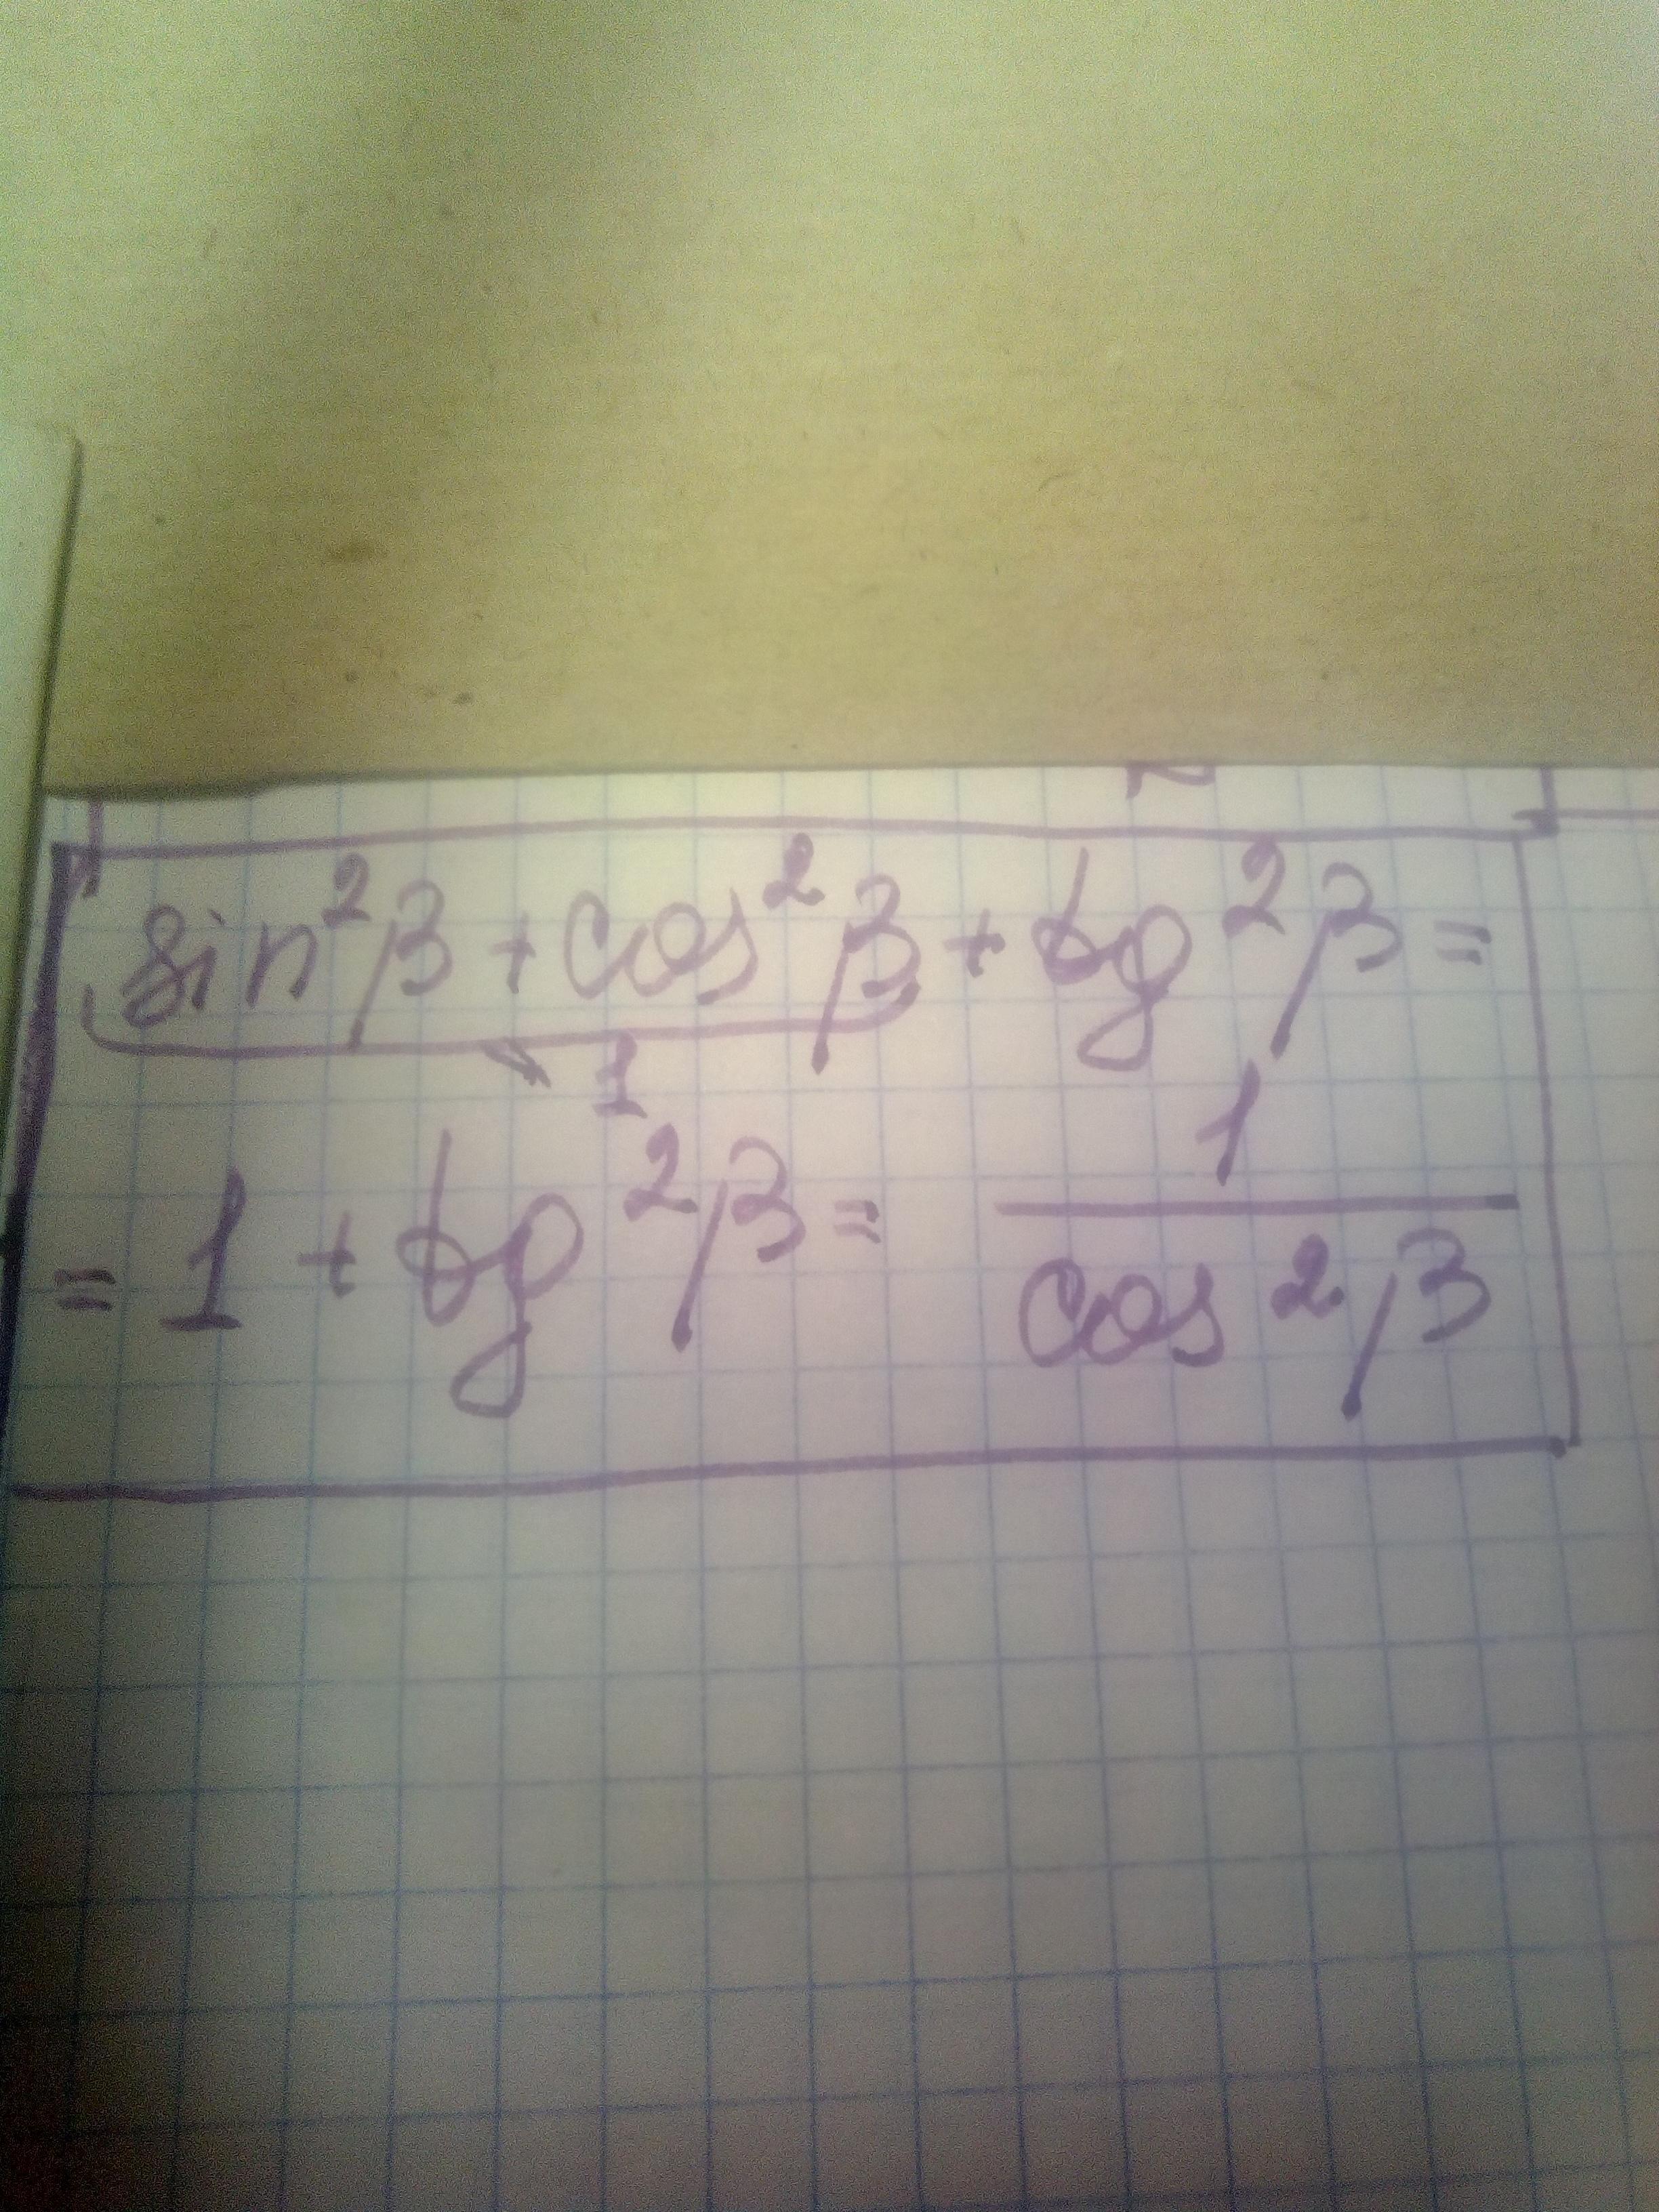 sin²β + cos²β + tg²β =
1
= 1 + tg²β = 1/cos²β